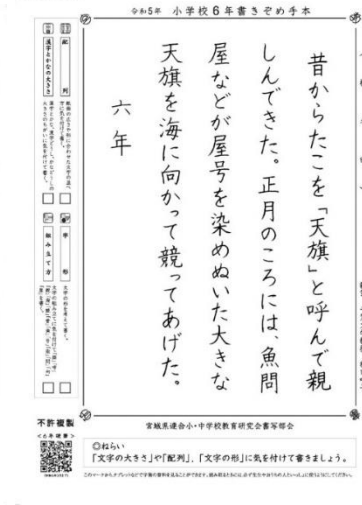 令和5年 小学校6年書きぞめ手本
昔からたこを「天旗」と呼んで親
しんできた。正月のころには、魚問
屋などが屋号を染めぬいた大きな
天旗を海に向かって競ってあげた。
六年
配列
漢字とかなの大きさ
字形
組み立て方
不許複製
<6年硬書>
宮城県連合小・中学校教育研究会書写部会
◎ねらい
「文字の大きさ」や「配列」、「文字の形」に気を付けて書きましょう。